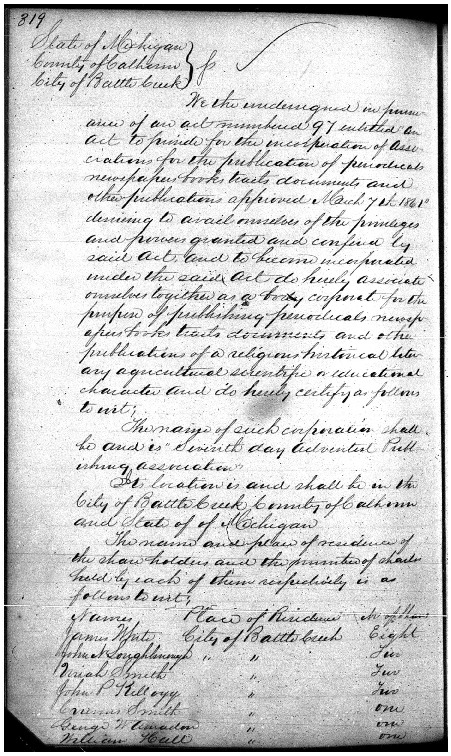 819
State of Michigan
County of Calhoun
City of Battle Creek } ss
We the undersigned in pursu-
ance of an act numbered 97 entitled "an
act to provide for the incorporation of Asso-
ciations for the publication of periodicals
newspapers books tracts documents and
other publications approved March 7th 1861"
desiring to avail ourselves of the privileges
and powers granted and conferd by
said Act and to become incorporated
under the said Act do hereby associate
ourselves together as a body corporate for the
purpose of publishing periodicals newsp
apers books tracts documents and other
publications of a religious historical liter
ary agricultural scientific or educational
character and do hereby certify as follows
to wit;
The name of such corporation shall
be and is "Seventh day adventist Publ
ishing association"
Its location is and shall be in the
City of Battle Creek, County of Calhoun
and State of of Michigan
The name and place of residence of
the share holders and the number of shares
held by each of them respectively is as
follows to wit;
Names, Place of Residence No of
James White City of Battle Creek Eight
John N Loughborough " " Two
Uriah Smith " Two
John P Kellogg " Two
Smith " one
George W Amadon " one
William Hall " one